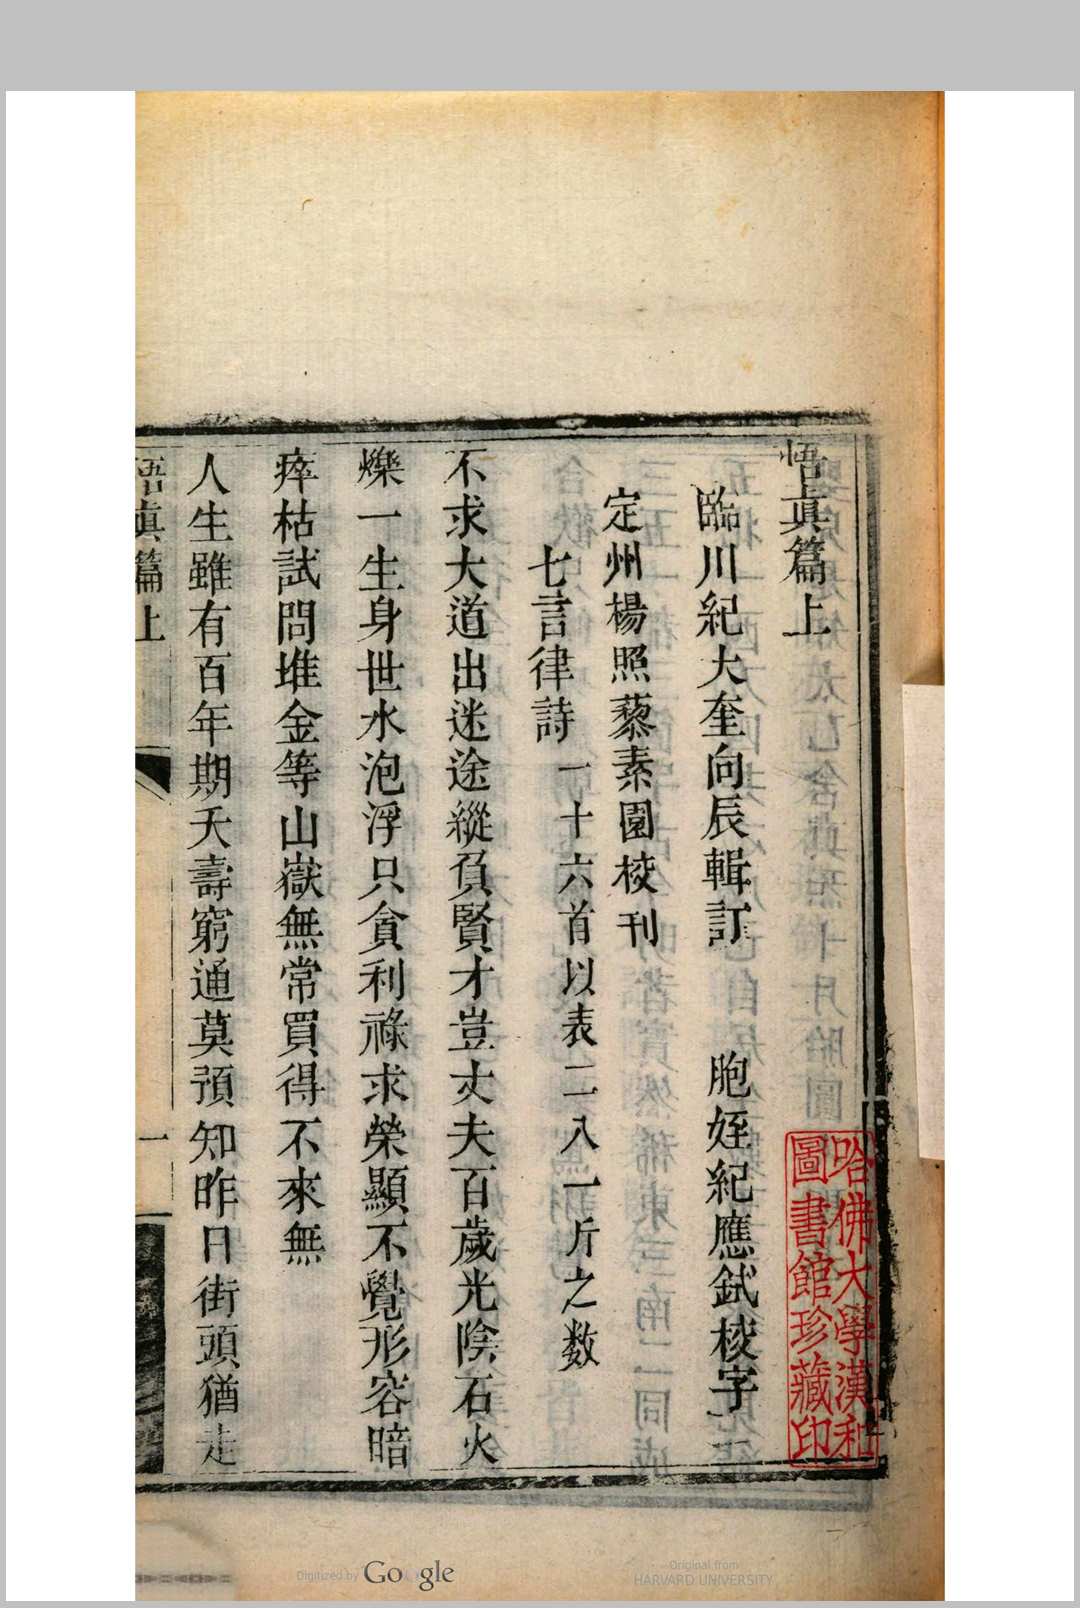 悟眞篇上
臨川紀大奎向辰輯訂　胞姪紀應鉽校字
定州楊照藜素園校刊
七言律詩 一十六首以表二八一斤之数
不求大道出迷途縱負賢才豈丈夫百歲光陰石火
爍一生身世水泡浮只貪利祿求榮顯不覺形容暗
瘁枯試問堆金等山嶽無常買得不來無
人生雖有百年期夭壽窮通莫預知昨日街頭猶走
悟眞篇上
一
哈佛大學漢和
圖書館珍藏印
Digitized by Google
Original from
HARVARD UNIVERSITY